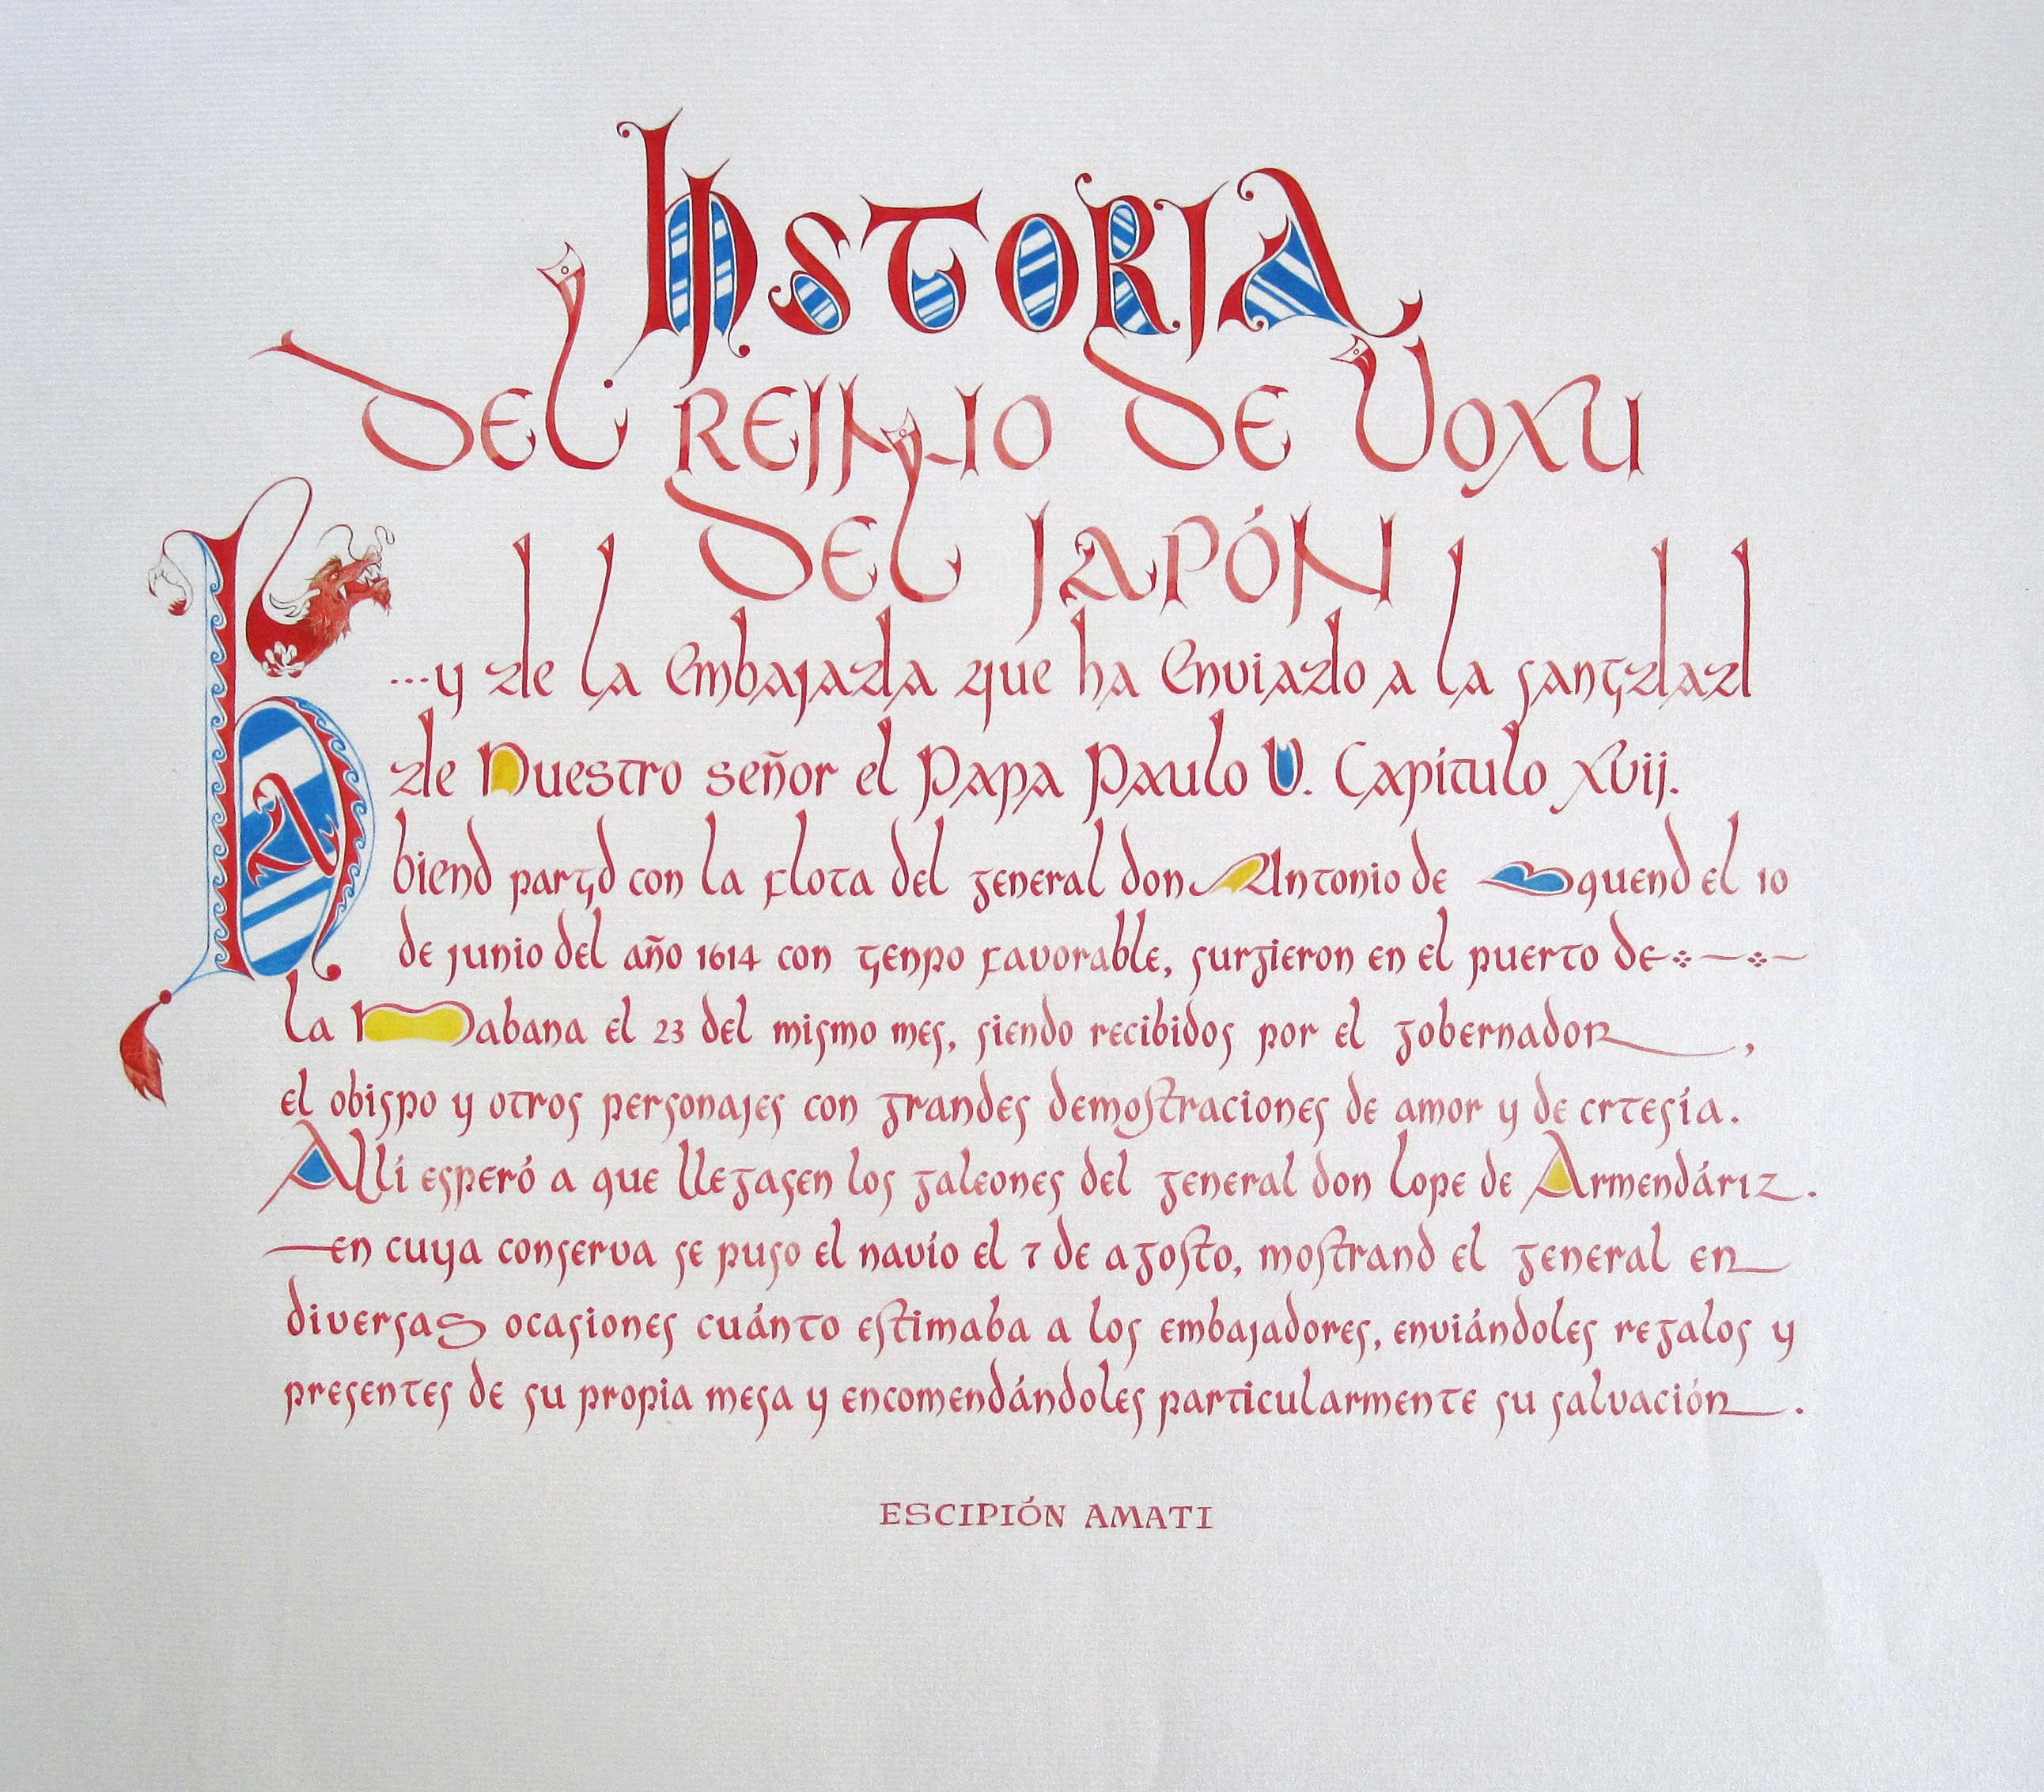 hISTORIA
DEL REINO DE VOXU
DEL JAPÓN
...y de la Embajada que ha Enviado a la santidad
de Nuestro señor el Papa Paulo V. Capítulo XVij.
HA biend partid con la flota del general don Antonio de Oquend el 10
de junio del año 1614 con tienpo favorable, surgieron en el puerto de
la Habana el 23 del mismo mes, siendo recibidos por el gobernador,
el obispo y otros personajes con grandes demostraciones de amor y de crtesía.
Allí esperó a que llegasen los galeones del general don Lope de Armendáriz.
en cuya conserva se puso el navío el 7 de agosto, mostrand el general en
diversas ocasiones cuánto estimaba a los embajadores, enviándoles regalos y
presentes de su propia mesa y encomendándoles particularmente su salvación.
ESCIPIÓN AMATI